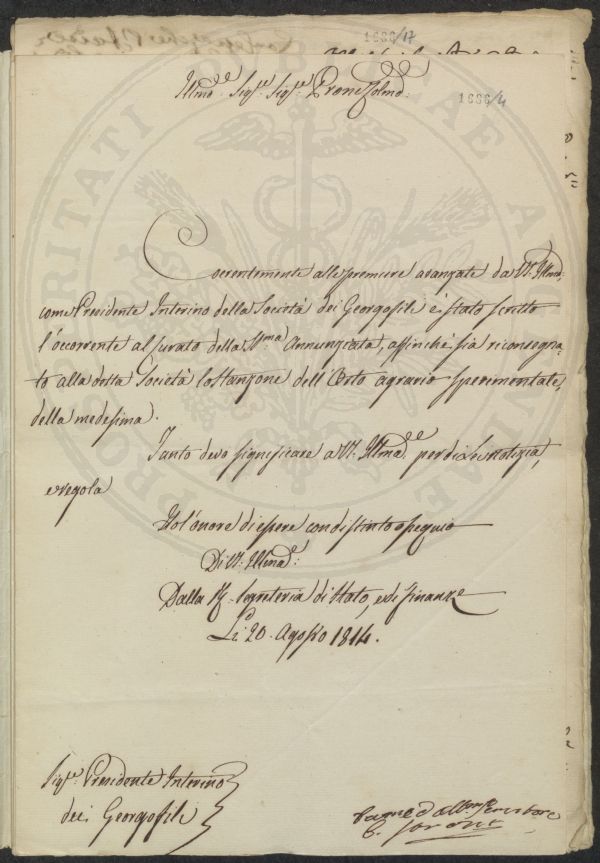 1686/17
1686/4
Illmo Sigre Sigre Prone Colmo:
Coerentemente alle premure avanzate da VS. Illma:
come Presidente Interino della Società dei Georgofili è stato scritto
l'occorrente al Curato della SSma Annunziata, affinchè sia riconsegna-
to alla detta Società lo Stanzone dell'Orto agrario Sperimentale,
della medesima.
Tanto devo significare a VS. Illma per di Lei notizia,
e regola
Ho l'onore di essere con distinto ossequio
Di VS. Illma:
Dalla R. Segreteria di Stato, e di Finanze
Li 20. Agosto 1814.
Sigre Presidente Interino
dei Georgofili
PROSPERITATI PUBLICAE AUGENDAE